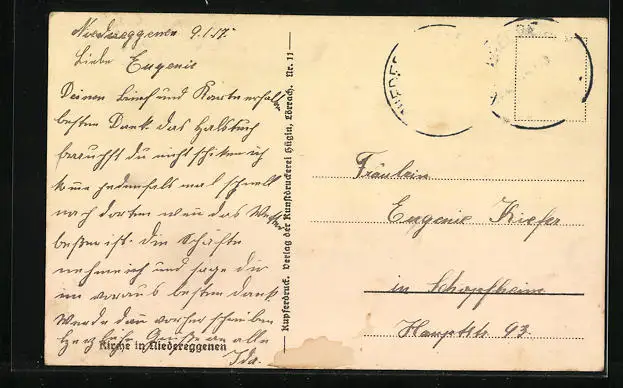 Niedereggenen 9.1.17.
Liebe Eugenie
Deinen Brief und Karten erhalten
besten Dank. das Halstuch
brauchst du nicht schiken ich
kome jedenfalls mal schnell
nach dorten wen das Wetter
beßer ist. die Schäfte
nehme ich und sage dir
im voraus besten dank
Werde dan vorher schreiben
Herzliche Grüße an alle
Ida.
Kirche in Niedereggenen
Kupferdruck. Verlag der Kunstdruckerei Hügin, Lörrach. Nr. 11
NIEDER
Fräulein
Eugenie Kiefer
in Schopfheim
Hauptstr 93.